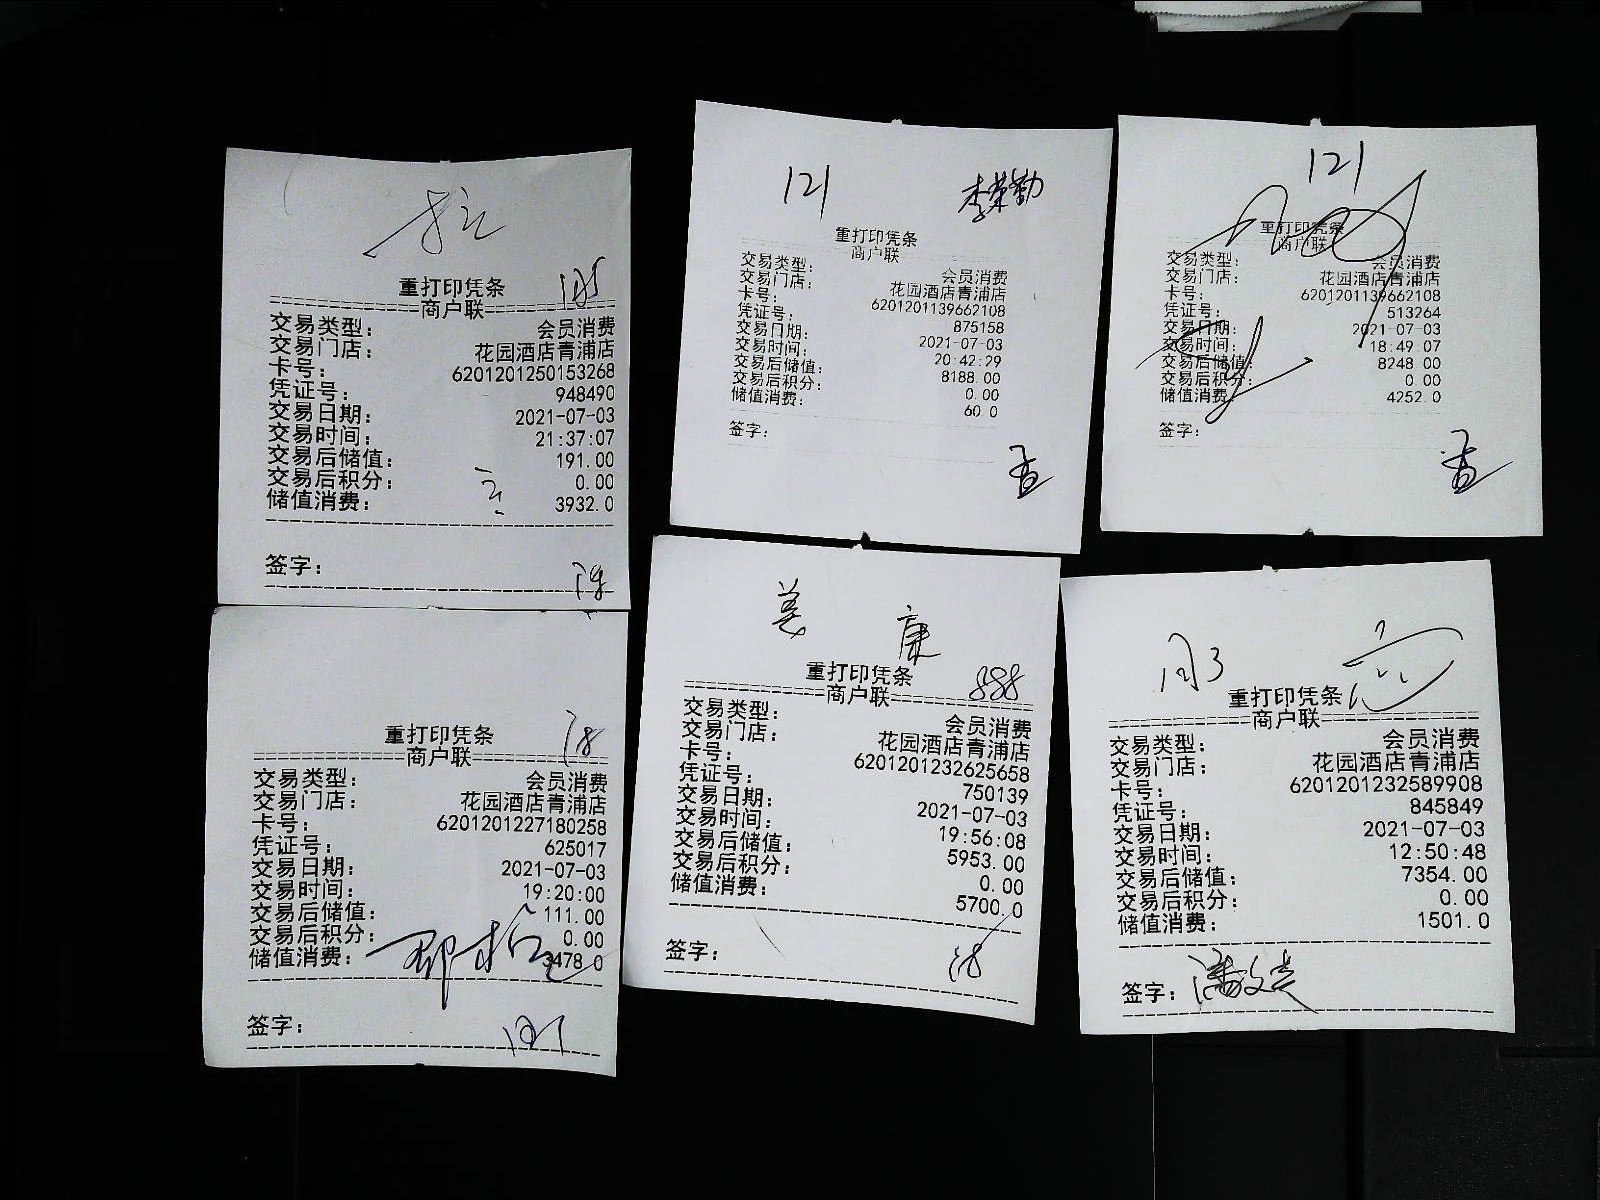 105
重打印凭条
商户联
交易类型： 会员消费
交易门店： 花园酒店青浦店
卡号： 6201201250153268
凭证号： 948490
交易日期： 2021-07-03
交易时间： 21:37:07
交易后储值： 191.00
交易后积分： 0.00
储值消费： 3932.0
签字：
121 李荣勤
重打印凭条
商户联
交易类型： 会员消费
交易门店： 花园酒店青浦店
卡号： 6201201139662108
凭证号： 875158
交易日期： 2021-07-03
交易时间： 20:42:29
交易后储值： 8188.00
交易后积分： 0.00
储值消费： 60.0
签字：
孟
121
重打印凭条
商户联
交易类型： 会员消费
交易门店： 花园酒店青浦店
卡号： 6201201139662108
凭证号： 513264
交易日期： 2021-07-03
交易时间： 18:49:07
交易后储值： 8248.00
交易后积分： 0.00
储值消费： 4252.0
签字：
孟
重打印凭条
商户联
交易类型： 会员消费
交易门店： 花园酒店青浦店
卡号： 6201201227180258
凭证号： 625017
交易日期： 2021-07-03
交易时间： 19:20:00
交易后储值： 111.00
交易后积分： 0.00
储值消费： 3478.0
签字：
姜 康
重打印凭条 888
商户联
交易类型： 会员消费
交易门店： 花园酒店青浦店
卡号： 6201201232625658
凭证号： 750139
交易日期： 2021-07-03
交易时间： 19:56:08
交易后储值： 5953.00
交易后积分： 0.00
储值消费： 5700.0
签字：
重打印凭条
商户联
交易类型： 会员消费
交易门店： 花园酒店青浦店
卡号： 6201201232589908
凭证号： 845849
交易日期： 2021-07-03
交易时间： 12:50:48
交易后储值： 7354.00
交易后积分： 0.00
储值消费： 1501.0
签字：